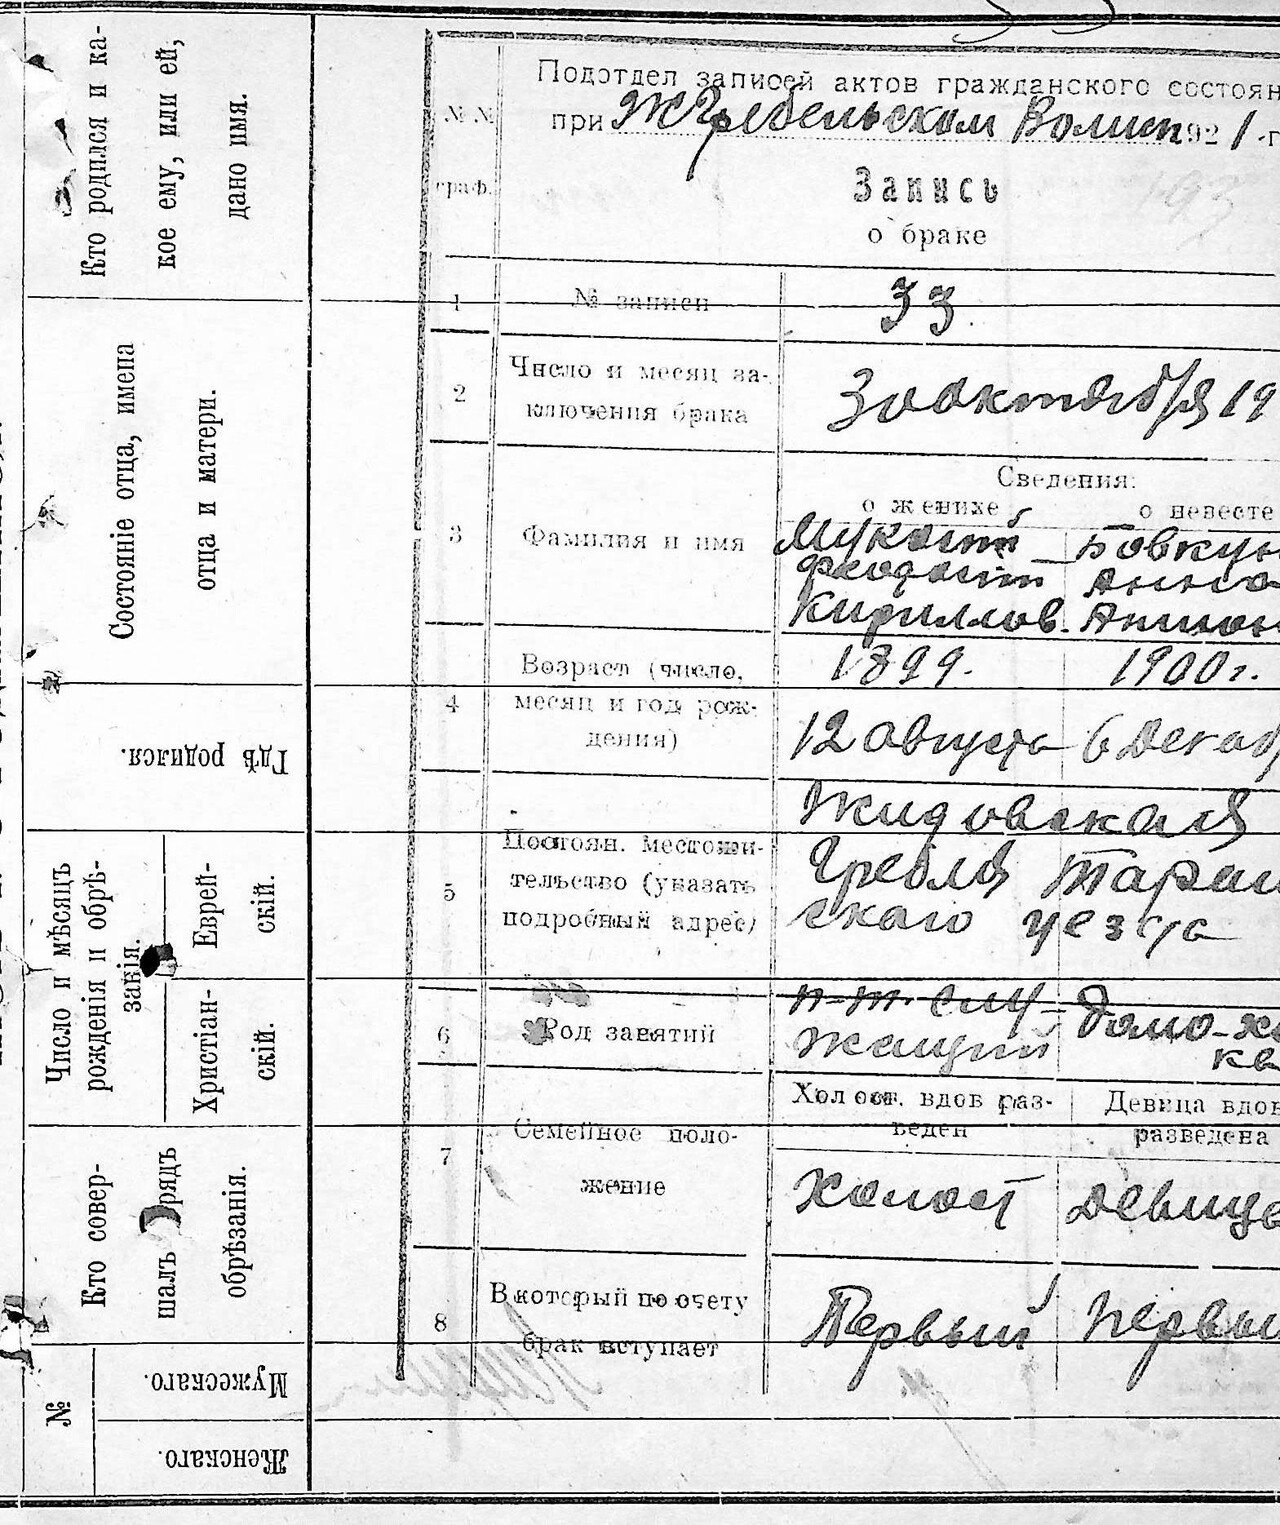 Кто родился и ка-
кое ему, или ей,
дано имя.
Состояніе отца, имена
отца и матери.
Гдѣ родился.
Число и мѣсяцъ
рожденія и обрѣ-
занія.
Еврей-
скій.
Христіан-
скій.
Кто совер-
шалъ
обрѣзанія.
№
Мужескаго.
Женскаго.
№№
граф.
Подотдел записей актов гражданского состоян
при ЖГребельском Волисп 1921-г
Запись
о браке
193
1 № записи 33
2 Число и месяц за-
ключения брака
30 октября 19
Сведения:
о женихе о невесте
3 Фамилия и имя
Мукосий Бовкун
Феодосий Анна
Кириллов. Антон
4 Возраст (число,
месяц и год рож-
дения)
1899. 1900г.
12 августа 6 Декаб
5 Постоян. местожи-
тельство (указать
подробный адрес)
Жидовская
Гребля Тараш
скаго уезда
6 Род занятий
слу- Домо-хо
жащий
7 Семейное поло-
жение
Холост. вдов раз-
веден
Девица вдов
разведена
Холост девице
8 В который по счету
брак вступает
Первый Первы